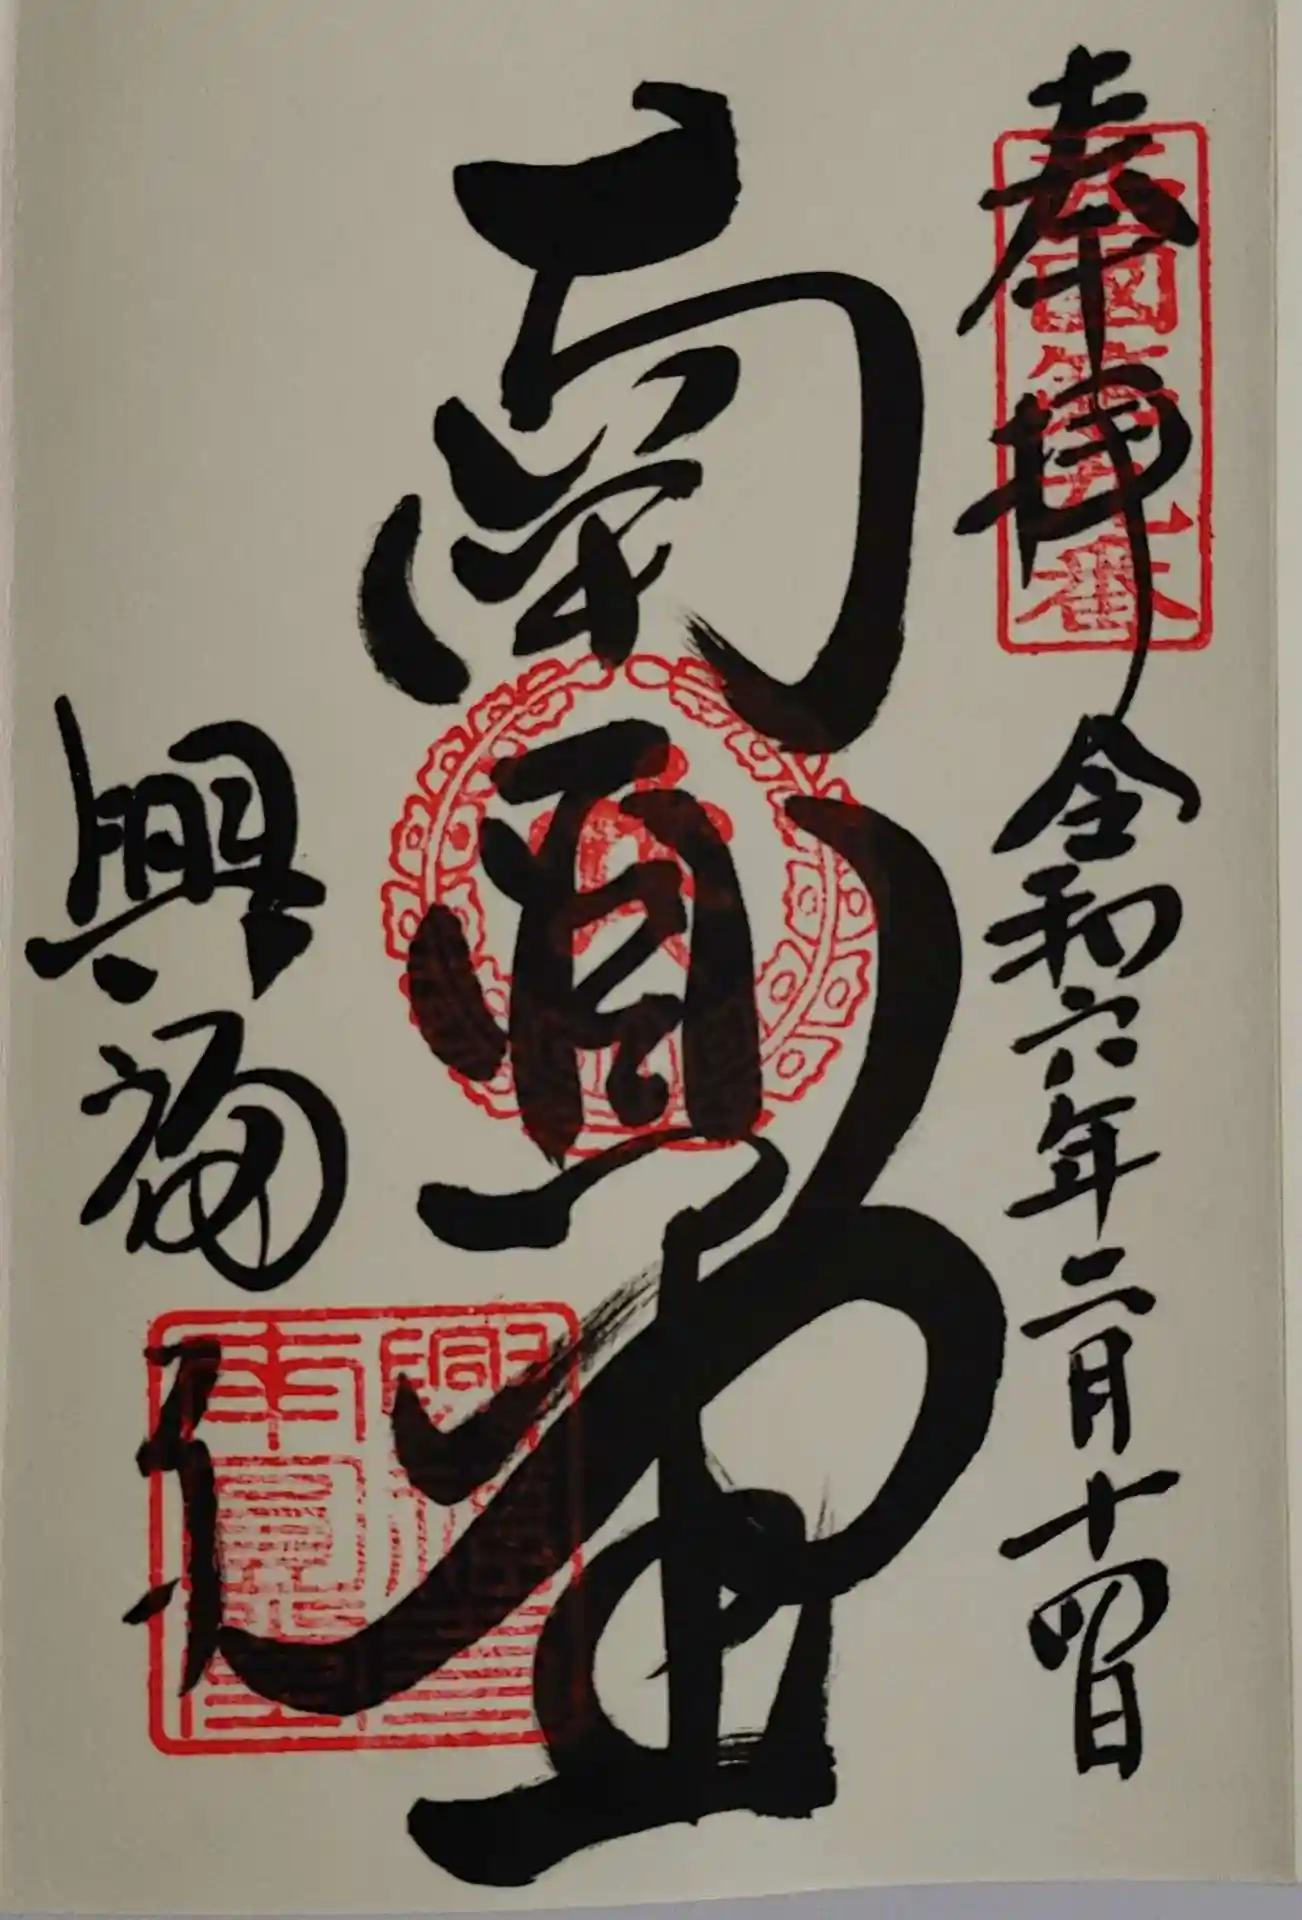 奉拝
令和六年二月十四日
西國第九番
南圓堂
興福寺